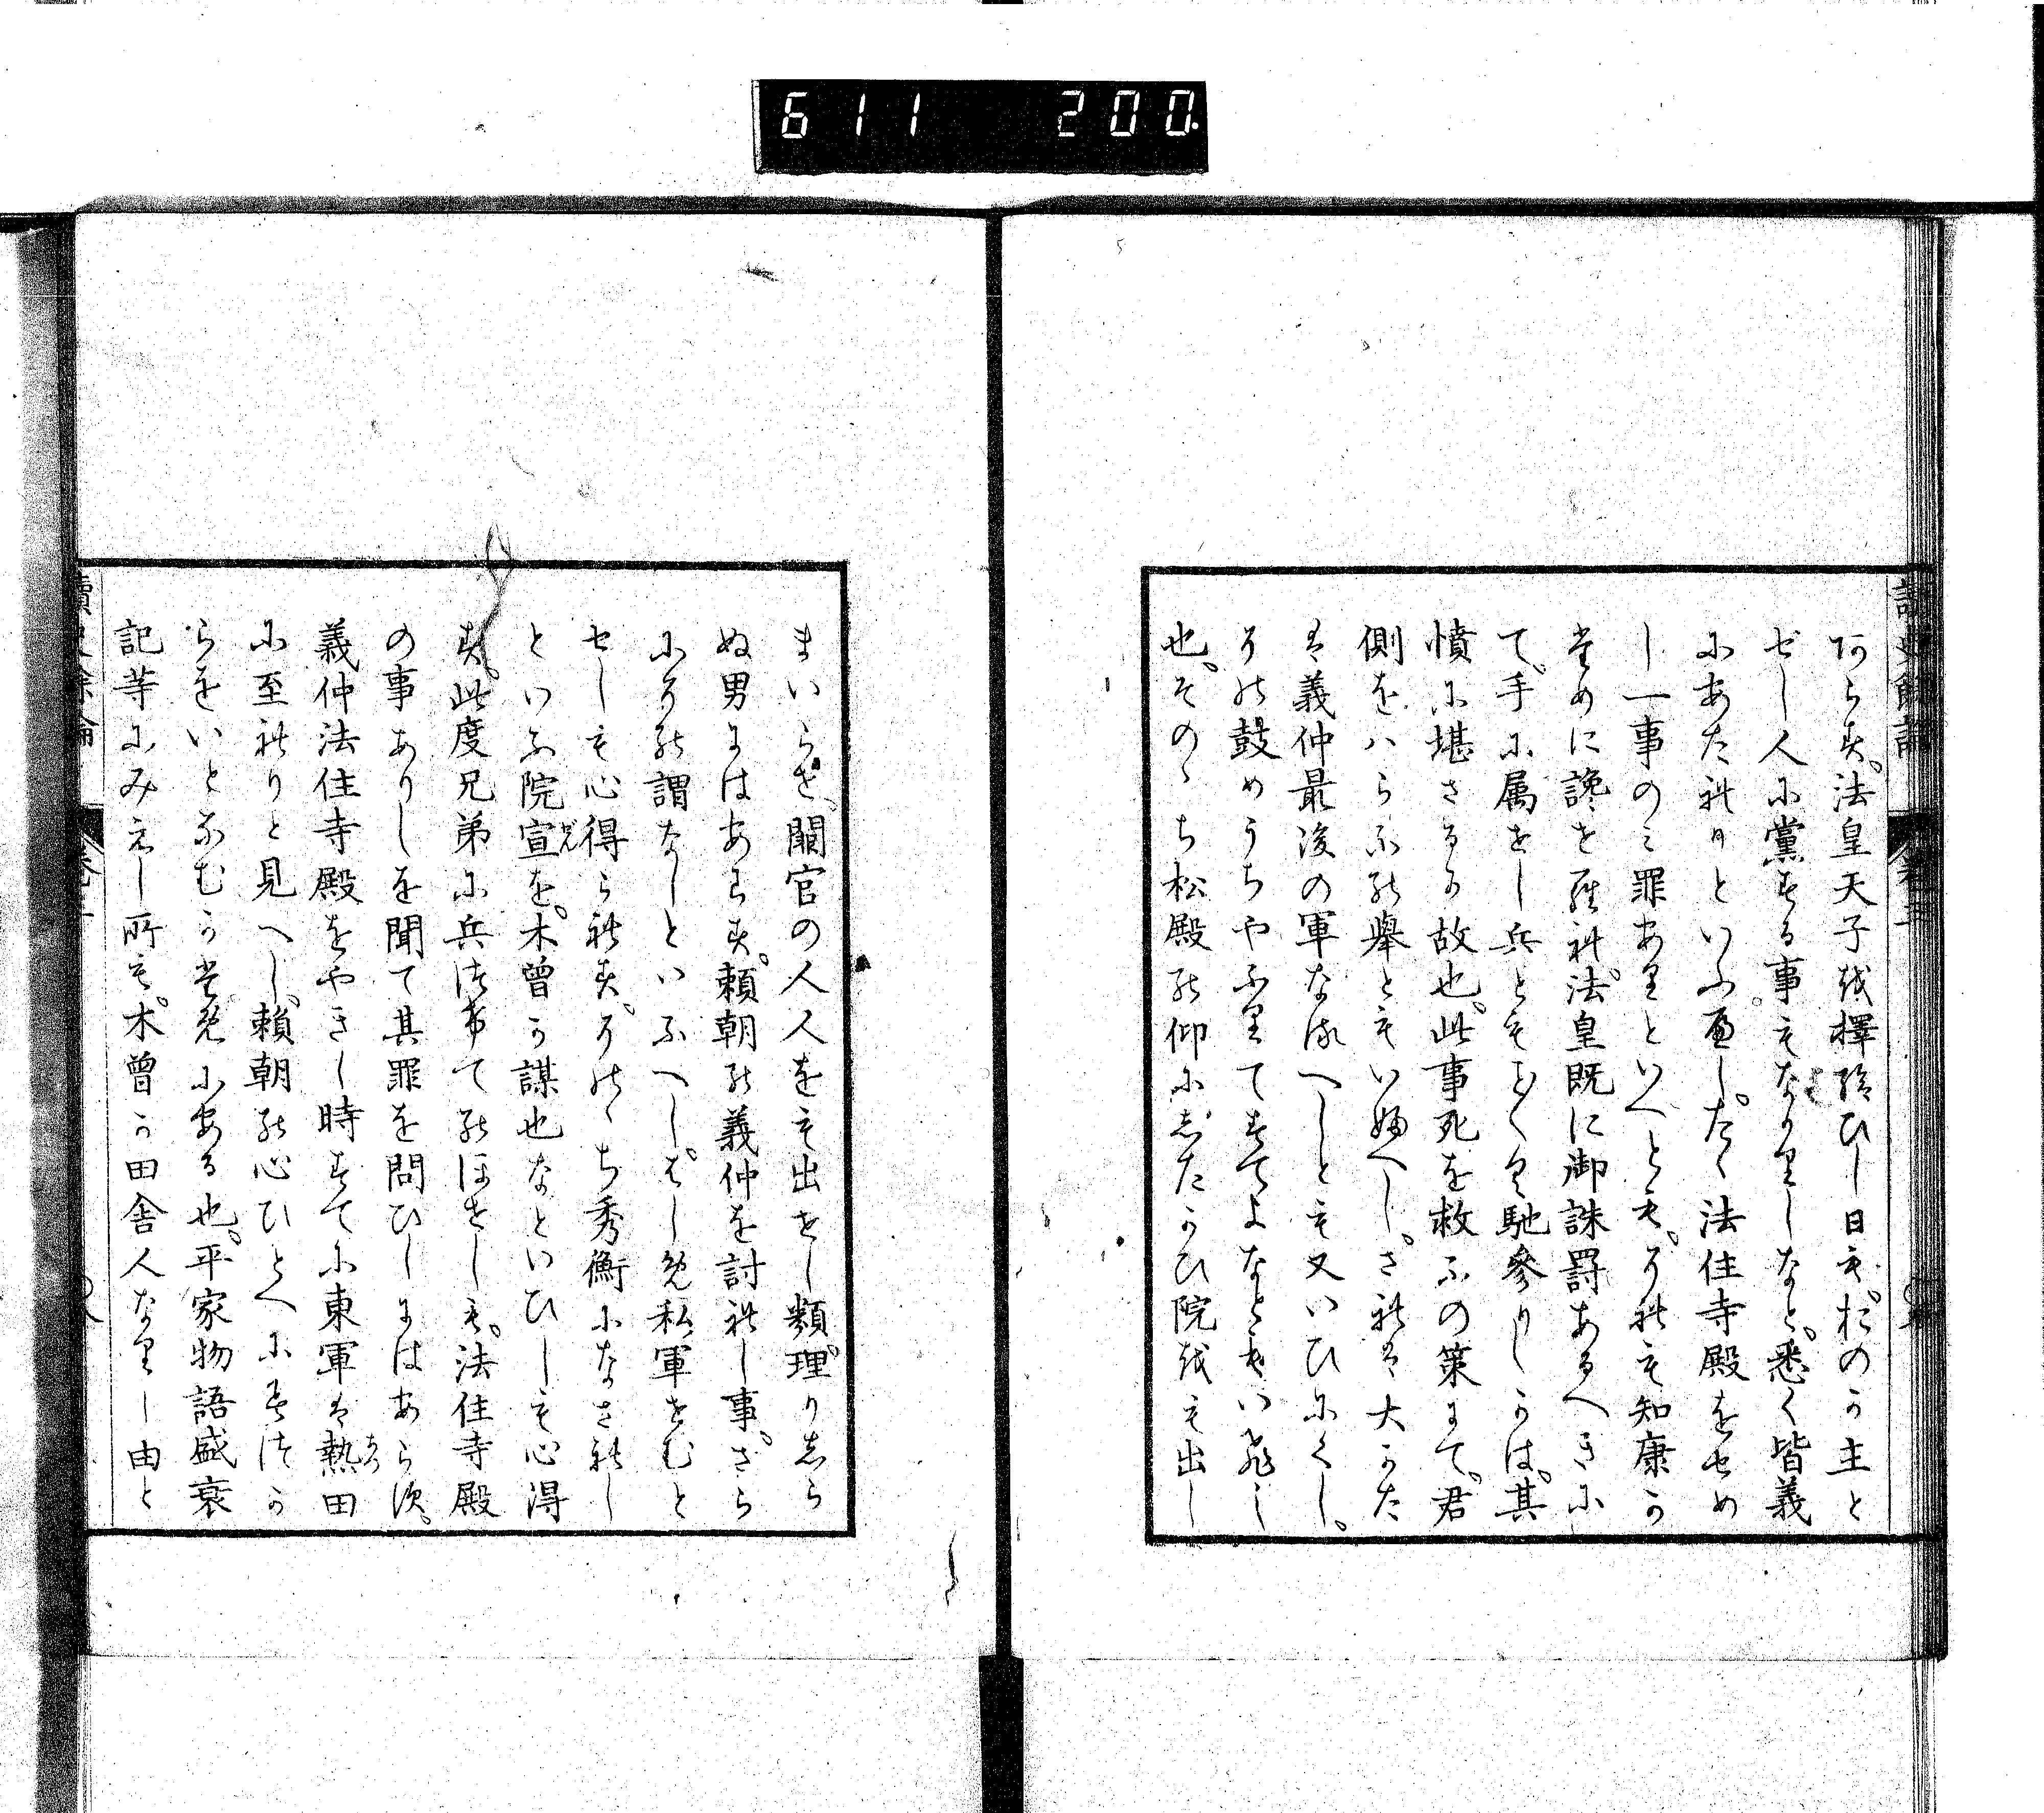 611 200.
讀史餘論 卷二
阿らす。法皇天子を擇給ひし日も。おのか主と
せし人に黨する事もなかりしなと。悉く皆義
にあたれりといふへし。たゝ法住寺殿をせめ
し一事のミ罪ありといへとも。それも知康か
ために讒せられ。法皇既に御誅罰あるへきに
て。手に属せし兵ともことく馳參りしかは。其
憤に堪さるか故也。此事死を救ふの策にて。君
側をハらふの擧ともいふへし。されは大かた
は義仲最後の軍なるへしとも又いひにくし。
その鼓めうちやふりてすてよなともいひし
也。そのゝち松殿の仰にしたかひ院をも出し
まいらせ。闕官の人人をも出せし類。理りしら
ぬ男にはあらす。頼朝の義仲を討れし事。さら
にその謂なしといふへし。はしめ私軍せむと
せしも心得られす。そのゝち秀衡になされし
といふ院宣を。木曾か謀也なといひしも心得
す。此度兄弟に兵つけてのほせしも。法住寺殿
の事ありしを聞て其罪を問ひしにはあらす。
義仲法住寺殿をやきし時すてに東軍は熱田
に至れりと見へし。頼朝の心ひとへにみつか
らをいとなむかために
ある也。平家物語盛衰
記等にみえし所も。木曾か田舎人なりし由と
讀史餘論 卷二